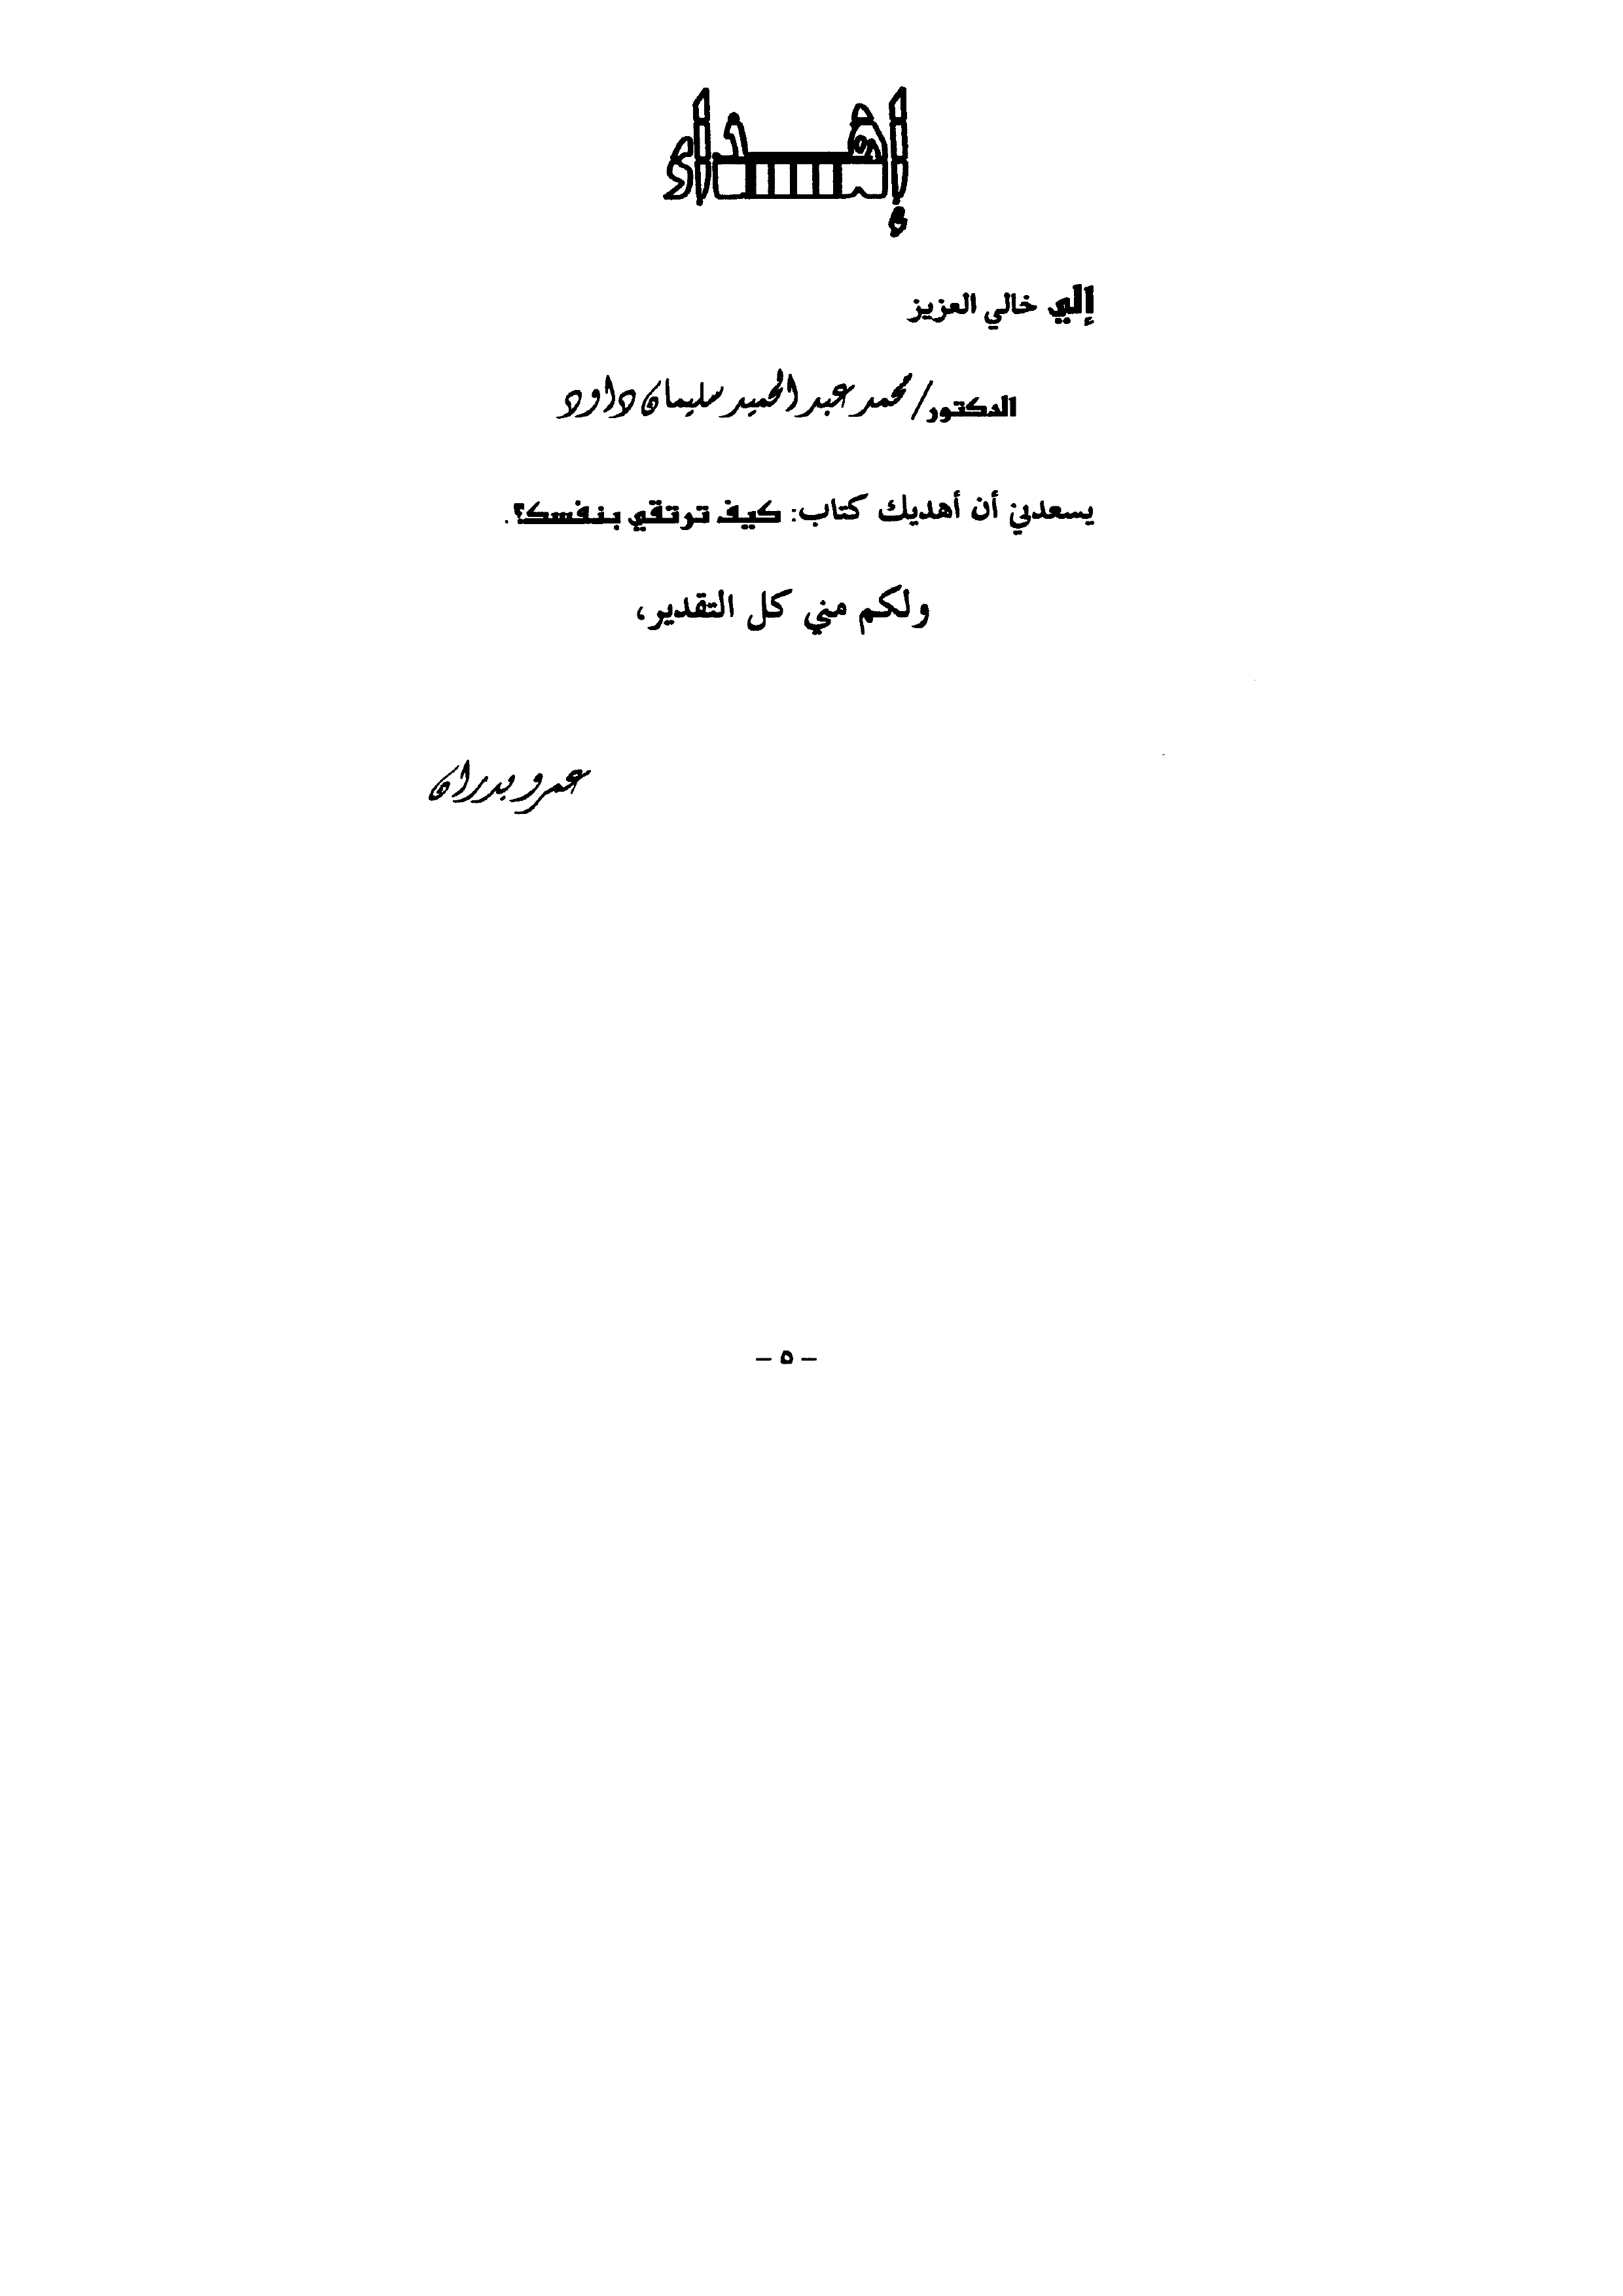 إهـــداء
إلي خالي العزيز
الدكتور/ محمد عبد الحميد سليمان داود
يسعدني أن أهديك كتاب: كيف ترتقي بنفسك؟.
ولكم مني كل التقدير،
عمرو بدران
– ٥ –